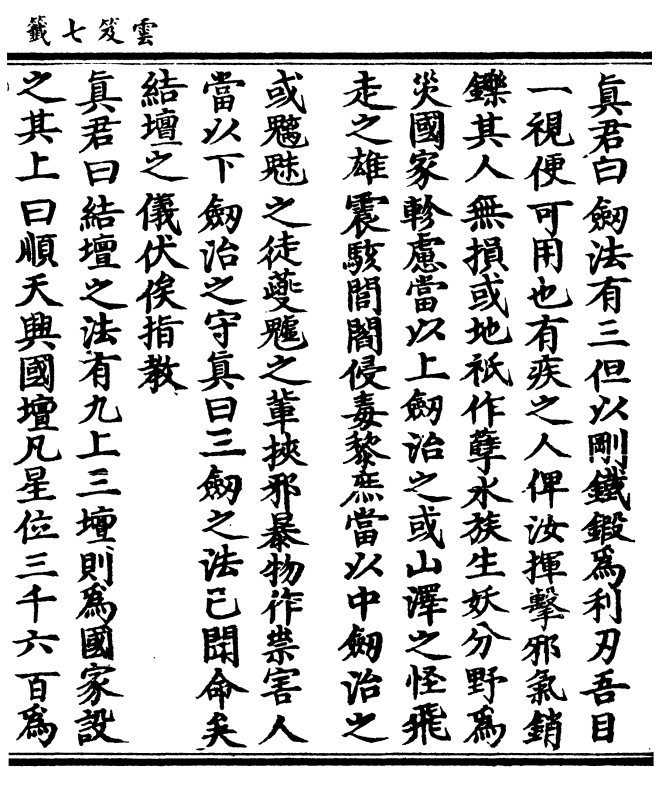 雲笈七籤
眞君曰劒法有三但以剛鐵鍛爲利刃吾目
一視便可用也有疾之人俾汝揮擊邪氣銷
鑠其人無損或地祇作孽水族生妖分野爲
災國家軫慮當以上劒治之或山澤之怪飛
走之雄震駭閭閻侵毒黎庶當以中劒治之
或魑魅之徒夔魖之輩挾邪暴物作祟害人
當以下劒治之守眞曰三劒之法已聞命矣
結壇之儀伏俟指教
眞君曰結壇之法有九上三壇則爲國家設
之其上曰順天興國壇凡星位三千六百爲